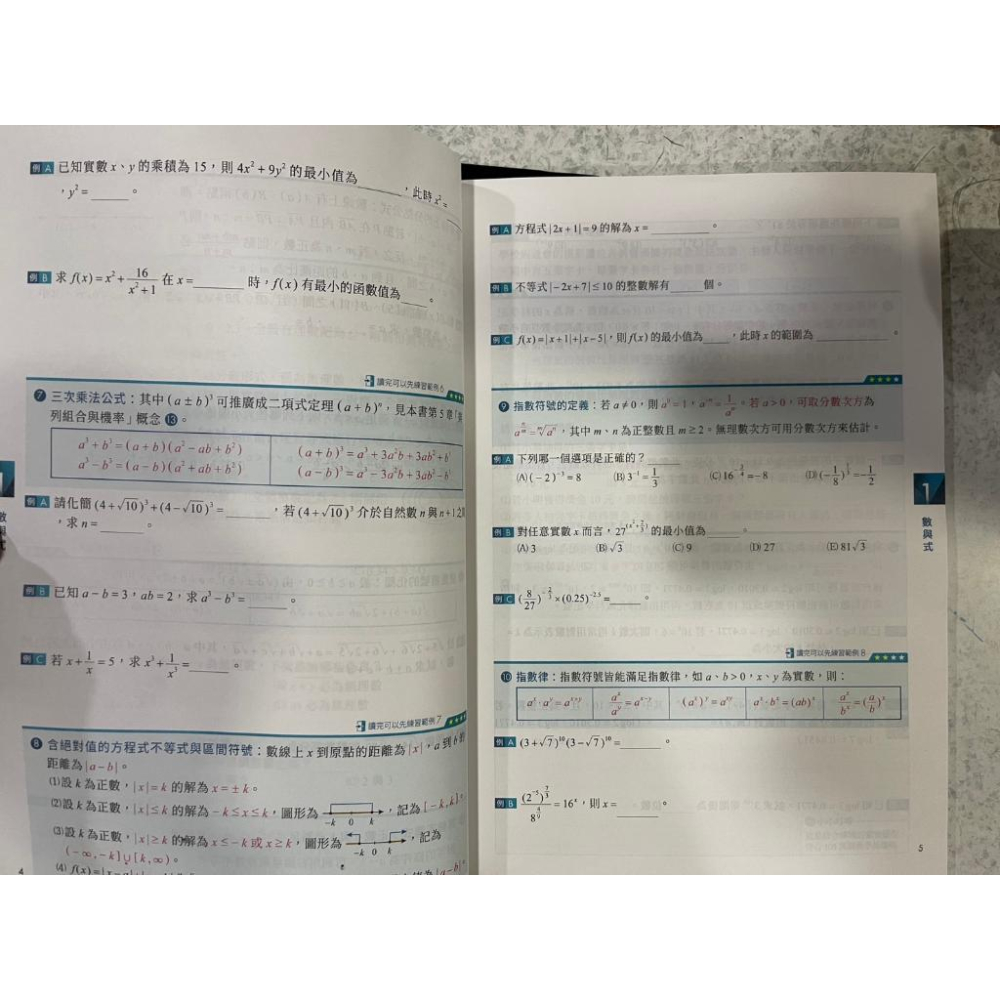 例 A 已知實數 x、y 的乘積為 15,則 4x²+9y² 的最小值為______,此時 x²=
,y²=______。
例 B 求 f(x)=x²+16/(x²+1) 在 x=______時,f(x) 有最小的函數值為____。
讀完可以先練習範例 6
7 三次乘法公式:其中 (a±b)³ 可推廣成二項式定理 (a+b)ⁿ,見本書第 5 章「
列組合與機率」概念 13。
a³+b³=(a+b)(a²-ab+b²) (a+b)³=a³+3a²b+3ab²+b³
a³-b³=(a-b)(a²+ab+b²) (a-b)³=a³-3a²b+3ab²-b³
例 A 請化簡 (4+√10)³+(4-√10)³=______,若 (4+√10)³ 介於自然數 n 與 n+1 之
,求 n=______。
例 B 已知 a-b=3,ab=2,求 a³-b³=______。
例 C 若 x+1/x=5,求 x³+1/x³=______。
讀完可以先練習範例 7
8 含絕對值的方程式不等式與區間符號:數線上 x 到原點的距離為 |x|,a 到 b 的
距離為 |a-b|。
(1)設 k 為正數,|x|=k 的解為 x=±k。
(2)設 k 為正數,|x|≤k 的解為 -k≤x≤k,圖形為 -k 0 k,記為 [-k,k]。
(3)設 k 為正數,|x|≥k 的解為 x≤-k 或 x≥k,圖形為 -k 0 k,記為
(-∞,-k]∪[k,∞)。
4
例 A 方程式 |2x+1|=9 的解為 x=______。
例 B 不等式 |-2x+7|≤10 的整數解有____個。
例 C f(x)=|x+1|+|x-5|,則 f(x) 的最小值為____,此時 x 的範圍為______。
9 指數符號的定義:若 a≠0,則 a⁰=1,a⁻ⁿ=1/aⁿ。若 a>0,可取分數次方為
a^(n/m)=ᵐ√aⁿ,其中 m、n 為正整數且 m≥2。無理數次方可用分數次方來估計。
例 A 下列哪一個選項是正確的?____
(A)(-2)⁻³=8 (B)3⁻¹=1/3 (C)16^(-3/4)=-8 (D)(-1/8)^(1/3)=-1/2
例 B 對任意實數 x 而言,27^(x²+2/3) 的最小值為____。
(A)3 (B)√3 (C)9 (D)27 (E)81√3
例 C (8/27)^(-2/3)×(0.25)^(-2.5)=____。
讀完可以先練習範例 8
10 指數律:指數符號皆能滿足指數律,如 a、b>0,x、y 為實數,則:
aˣ·aʸ=aˣ⁺ʸ aˣ/aʸ=aˣ⁻ʸ (aˣ)ʸ=aˣʸ aˣ·bˣ=(ab)ˣ aˣ/bˣ=(a/b)ˣ
例 A (3+√7)¹⁰(3-√7)¹⁰=______。
例 B (2⁻⁵)^(7/3)/8^(4/9)=16ˣ,則 x=______。
1
數與式
5